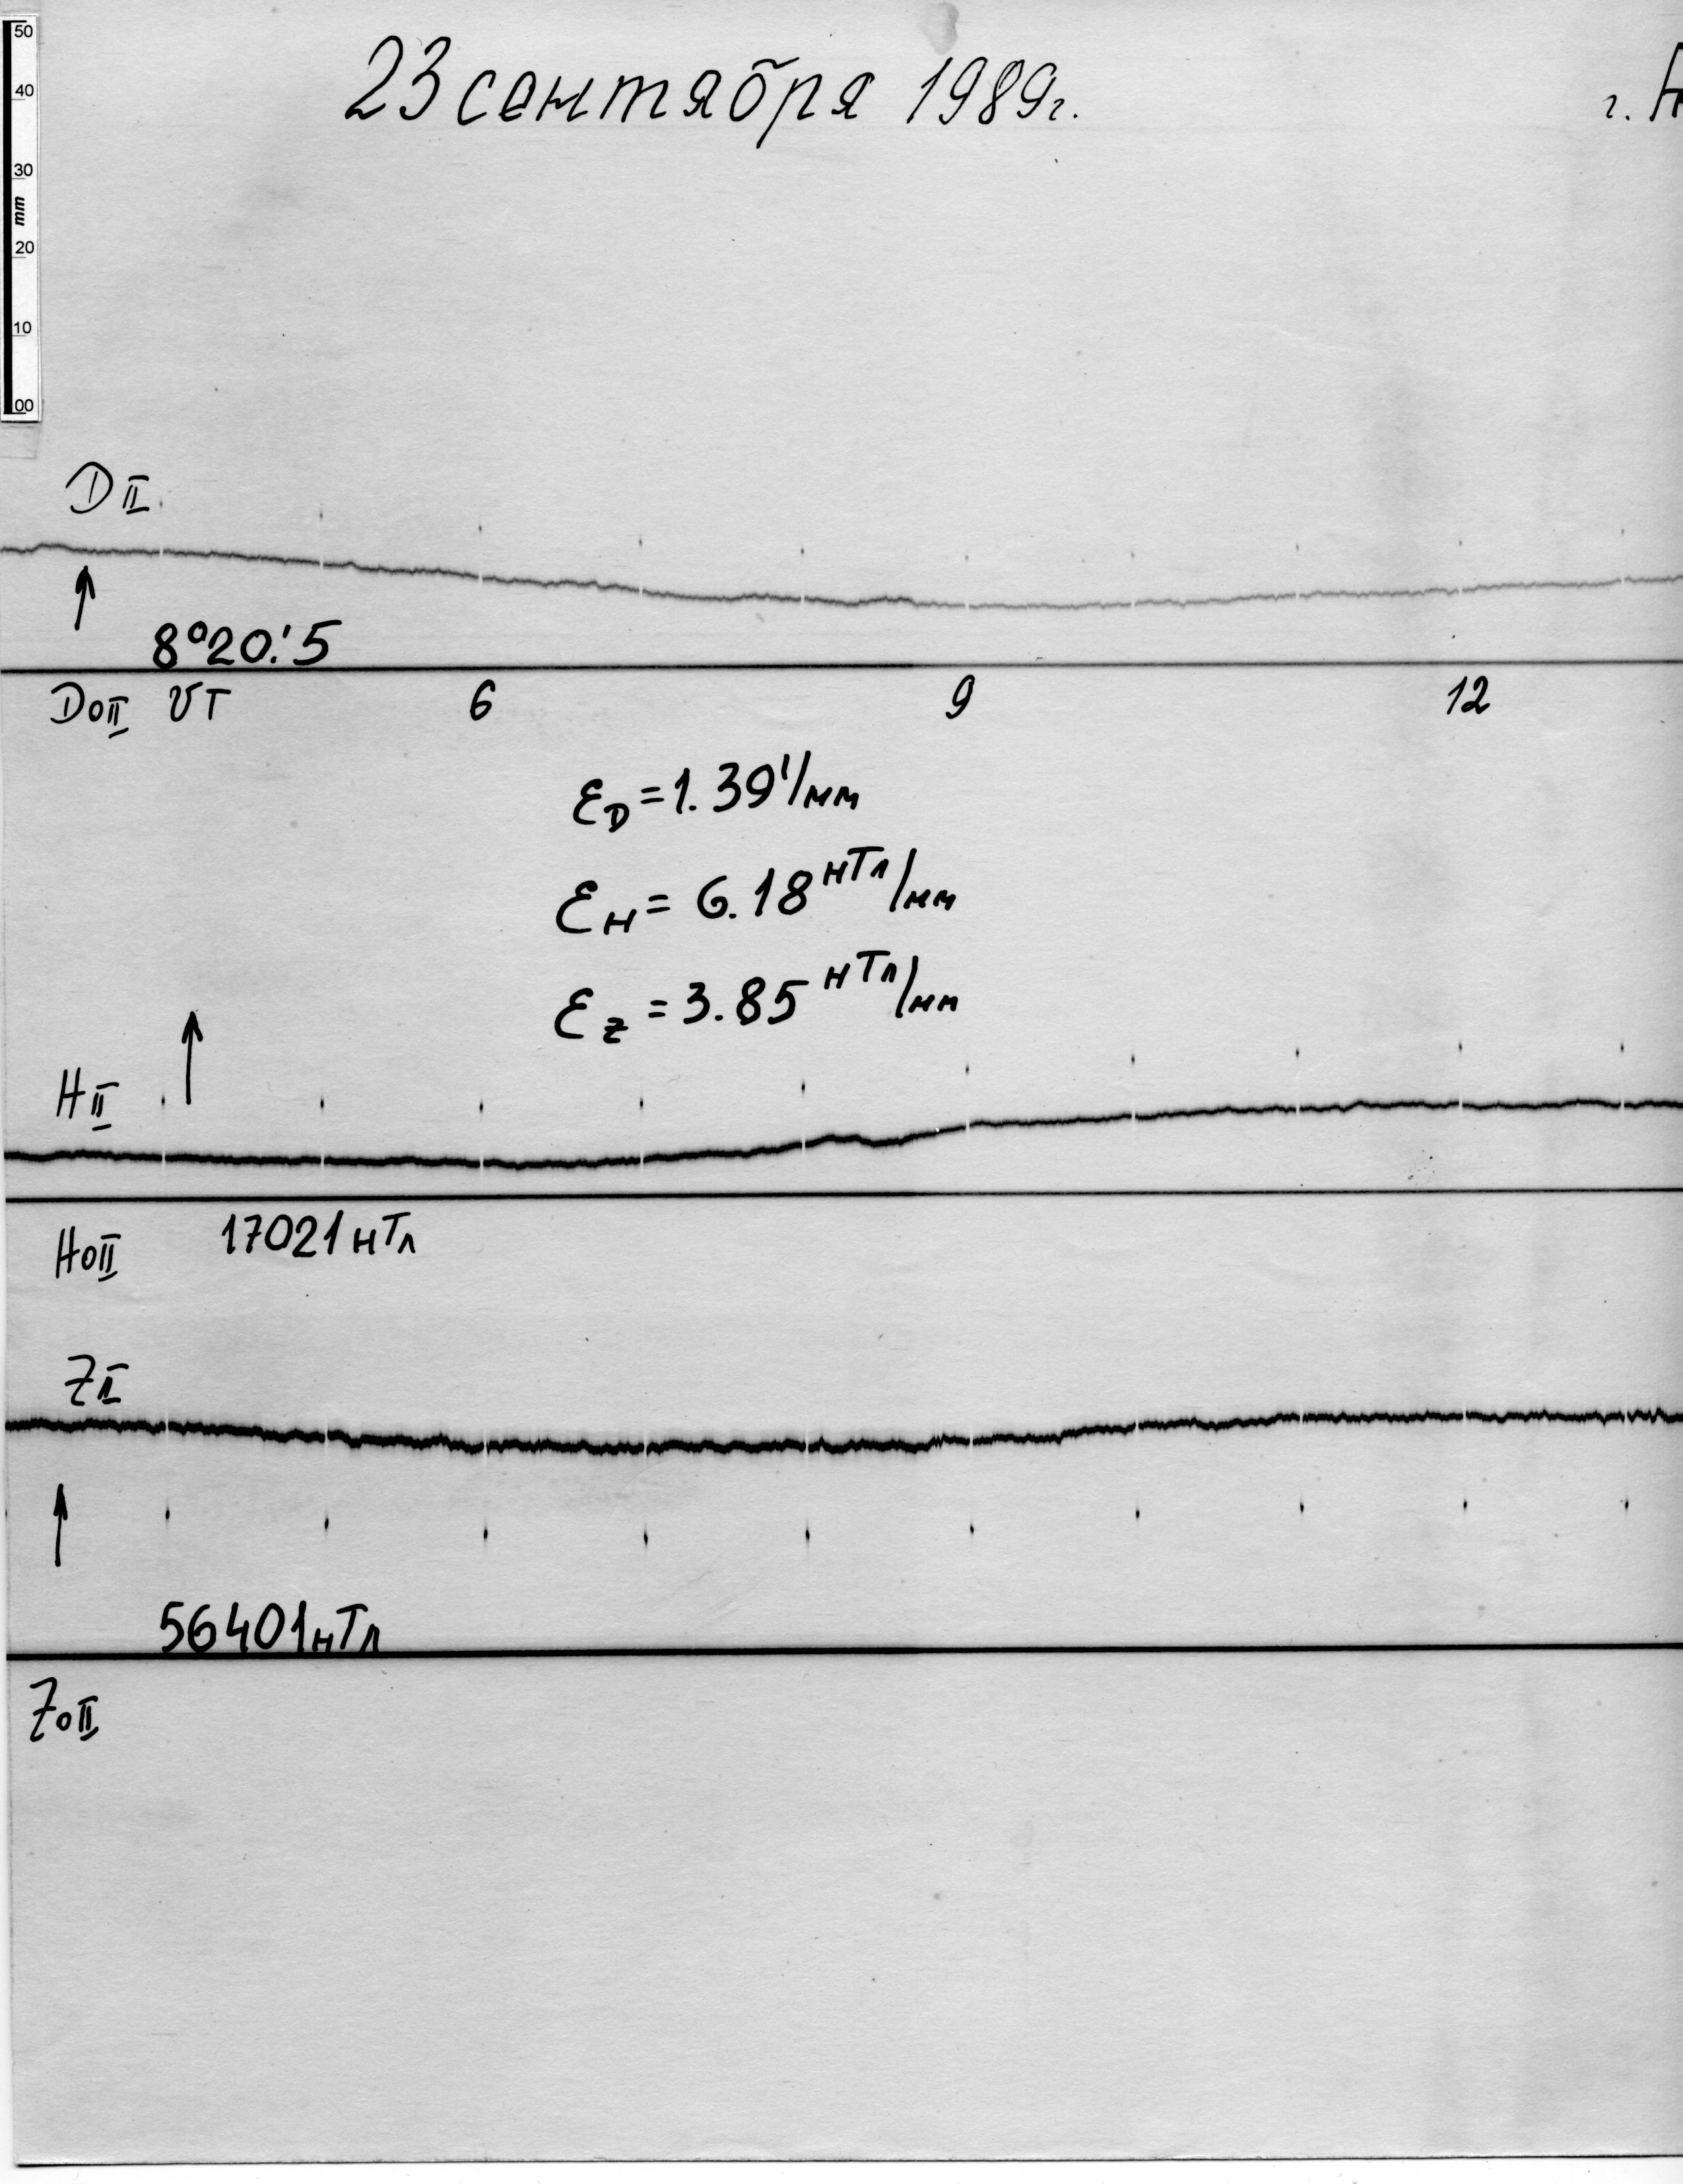 50
40
30
mm
20
10
00
23 сентября 1989г.
г.
DII
8°20.'5
DoII UT 6 9 12
ƐD = 1.39'/мм
ƐH = 6.18 нТл/мм
ƐZ = 3.85 нТл/мм
HII
HoII 17021 нТл
ZII
56401 нТл
ZoII